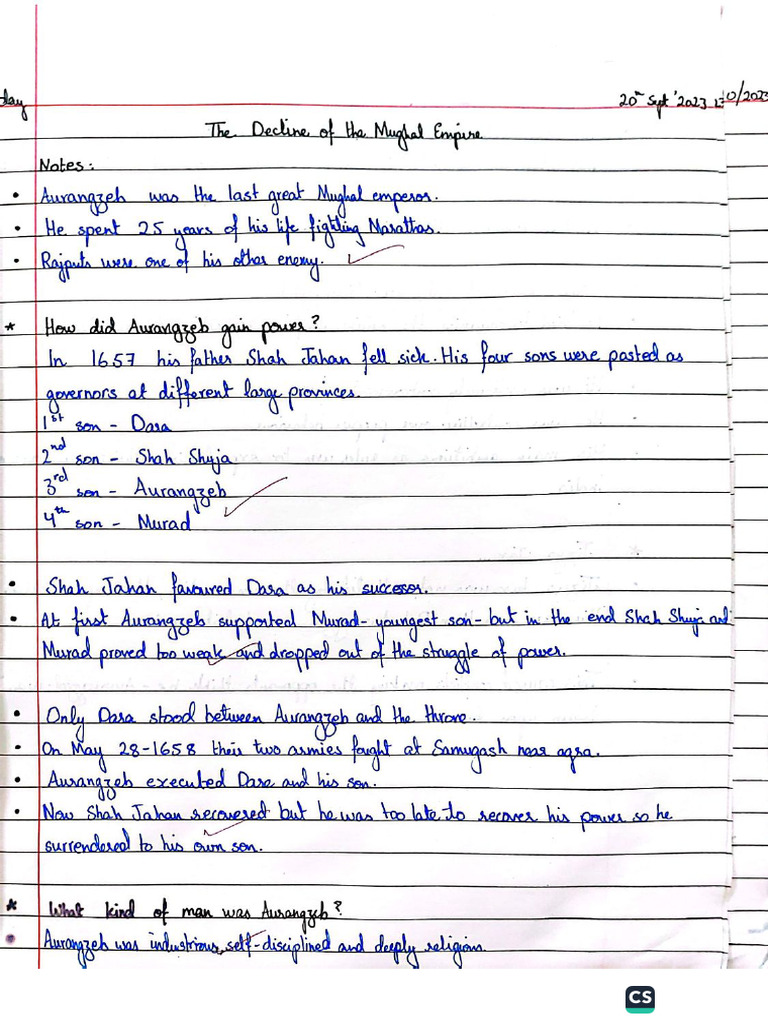 day
20th Sept '2023
0/2023
The Decline of the Mughal Empire
Notes:
• Aurangzeb was the last great Mughal emperor.
• He spent 25 years of his life fighting Marathas.
• Rajputs were one of his other enemy.
* How did Aurangzeb gain power?
In 1657 his father Shah Jahan fell sick. His four sons were posted as
governors at different large provinces.
1st son - Dara
2nd son - Shah Shuja
3rd son - Aurangzeb
4th son - Murad
• Shah Jahan favoured Dara as his successor.
• At first Aurangzeb supported Murad - youngest son - but in the end Shah Shuja and
Murad proved too weak and dropped out of the struggle of power.
• Only Dara stood between Aurangzeb and the throne.
• On May 28-1658 their two armies fought at Samugash near agra.
• Aurangzeb executed Dara and his son.
• Now Shah Jahan recovered but he was too late to recover his power so he
surrendered to his own son.
* What kind of man was Aurangzeb?
• Aurangzeb was industrious, self-disciplined and deeply religious.
CS